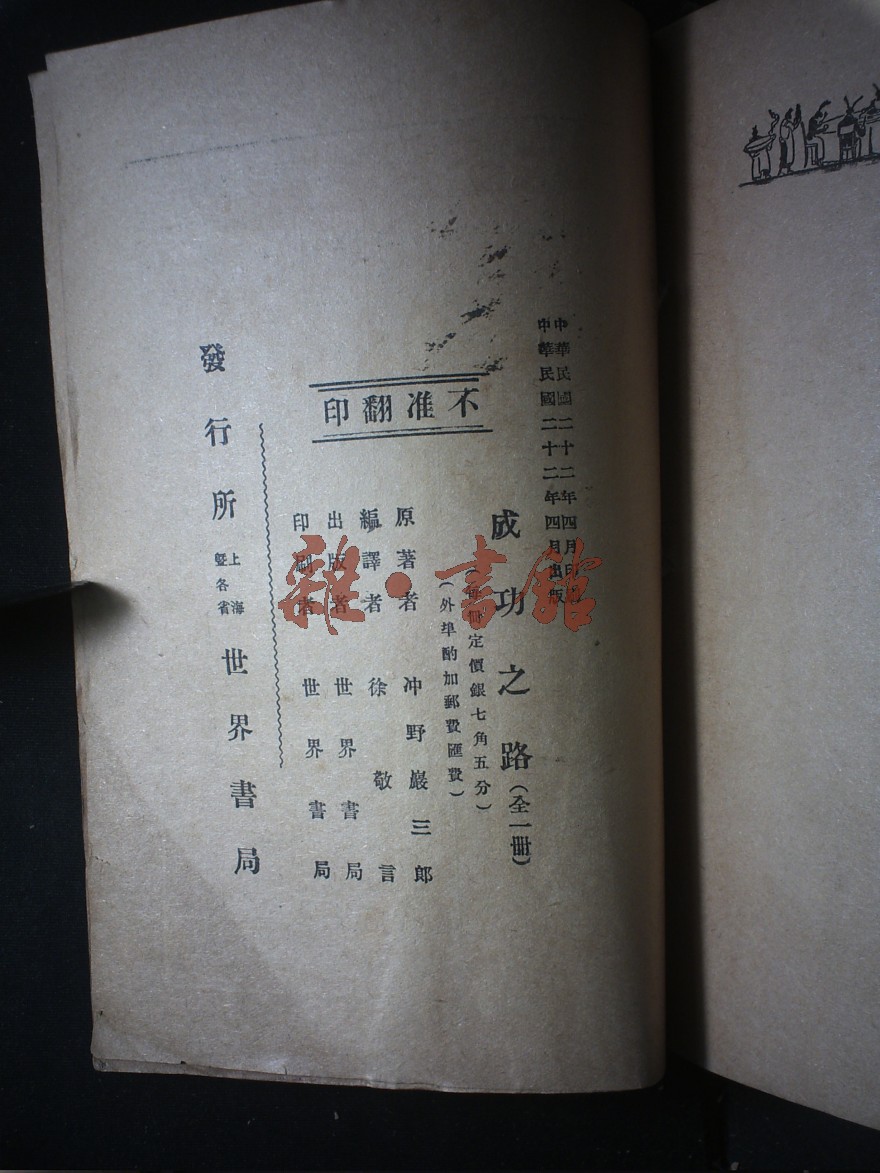 中華民國二十二年四月印
中華民國二十二年四月出版
成功之路（全一冊）
定價銀七角五分）
（外埠酌加郵費匯費）
不准翻印
原著者 冲野巖三郎
編譯者 徐敬言
出版者 世界書局
印刷者 世界書局
發行所 上海暨各省 世界書局
雜·書館